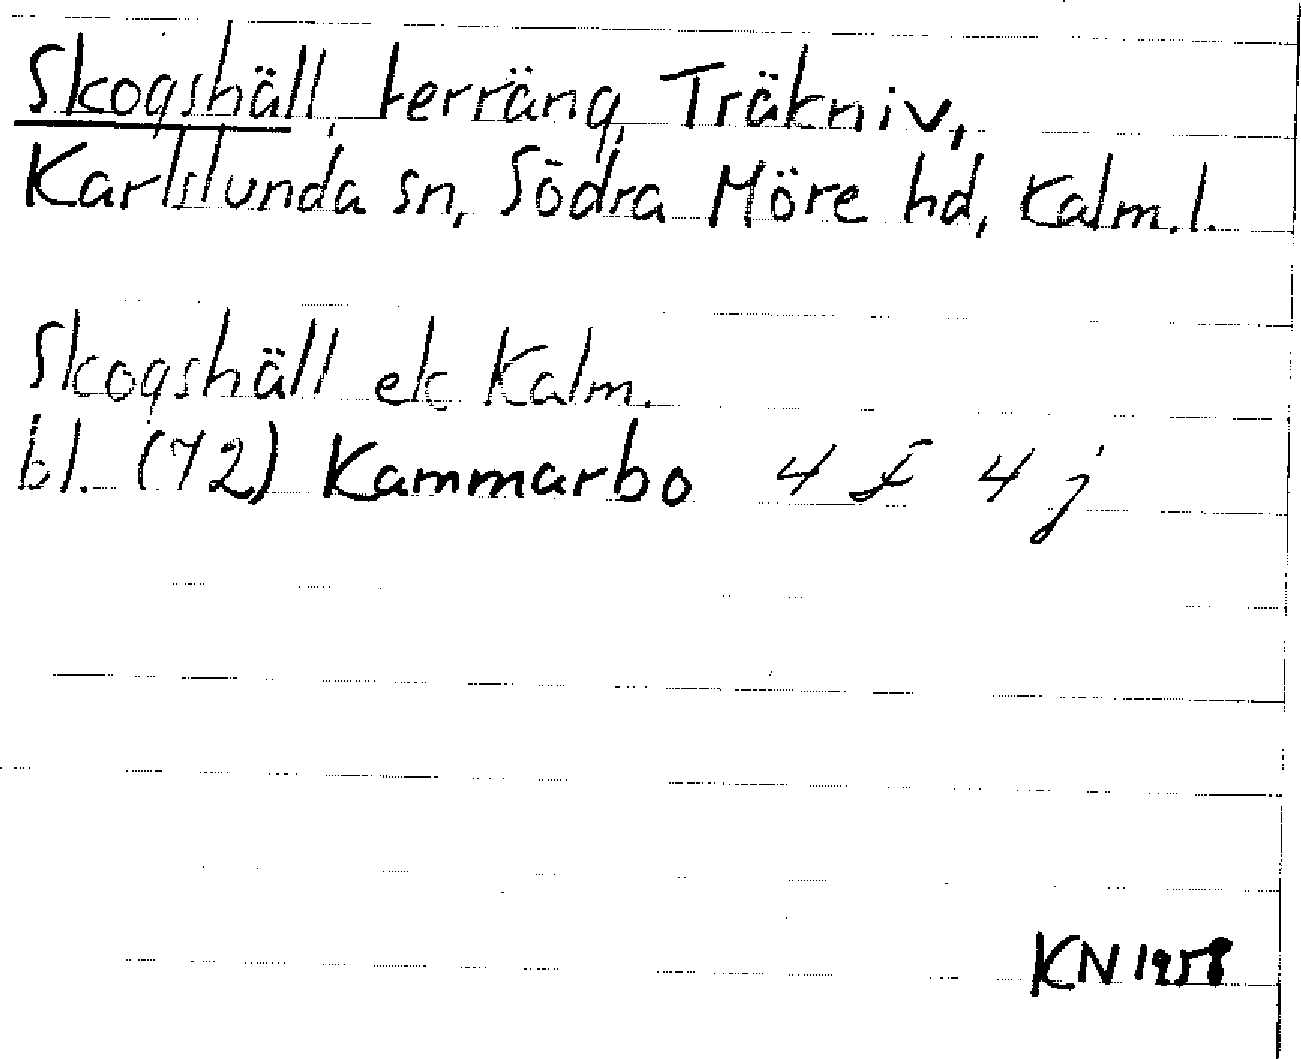 Skogshäll, terräng, Träkniv,
Karlslunda sn, Södra Möre hd, Kalm. l.
Skogshäll ek Kalm.
bl. (72) Kammarbo 4 F 4 j
KN 1958